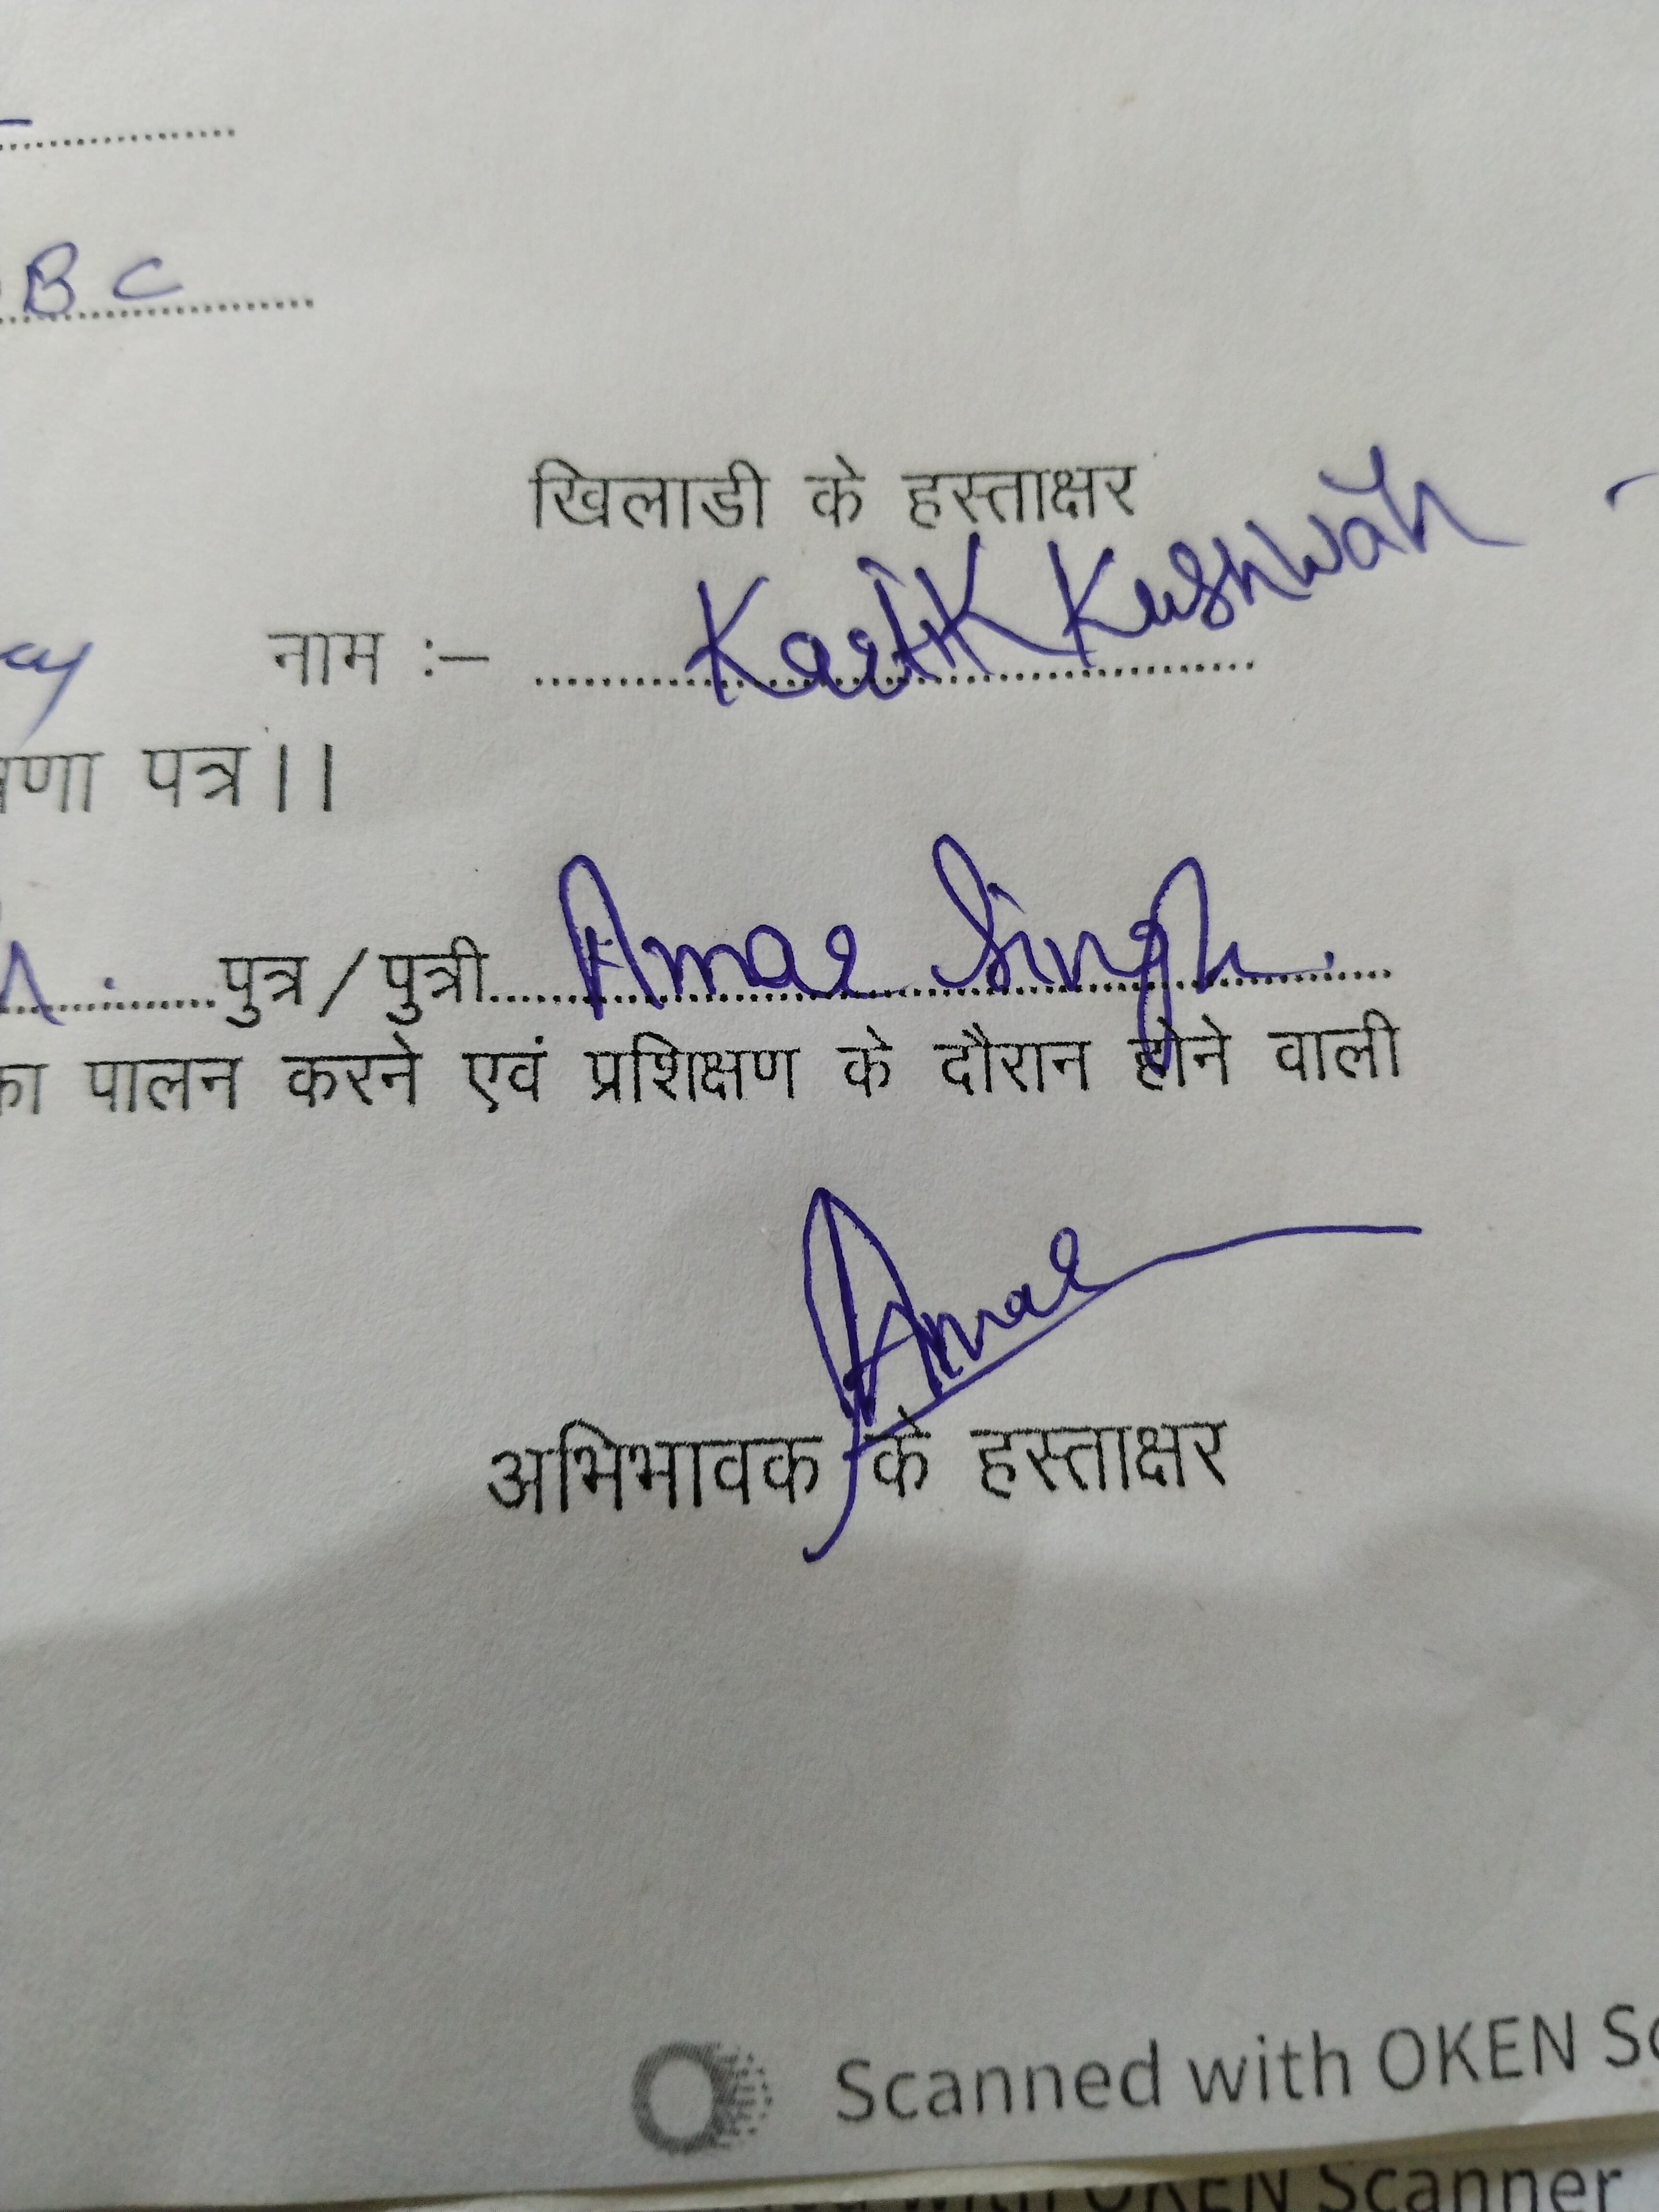 B C
खिलाडी के हस्ताक्षर
नाम :– Kartik Kushwah
षणा पत्र।।
पुत्र/पुत्री Amar Singh.
का पालन करने एवं प्रशिक्षण के दौरान होने वाली
Amar
अभिभावक के हस्ताक्षर
Scanned with OKEN Sc
with OKEN Scanner